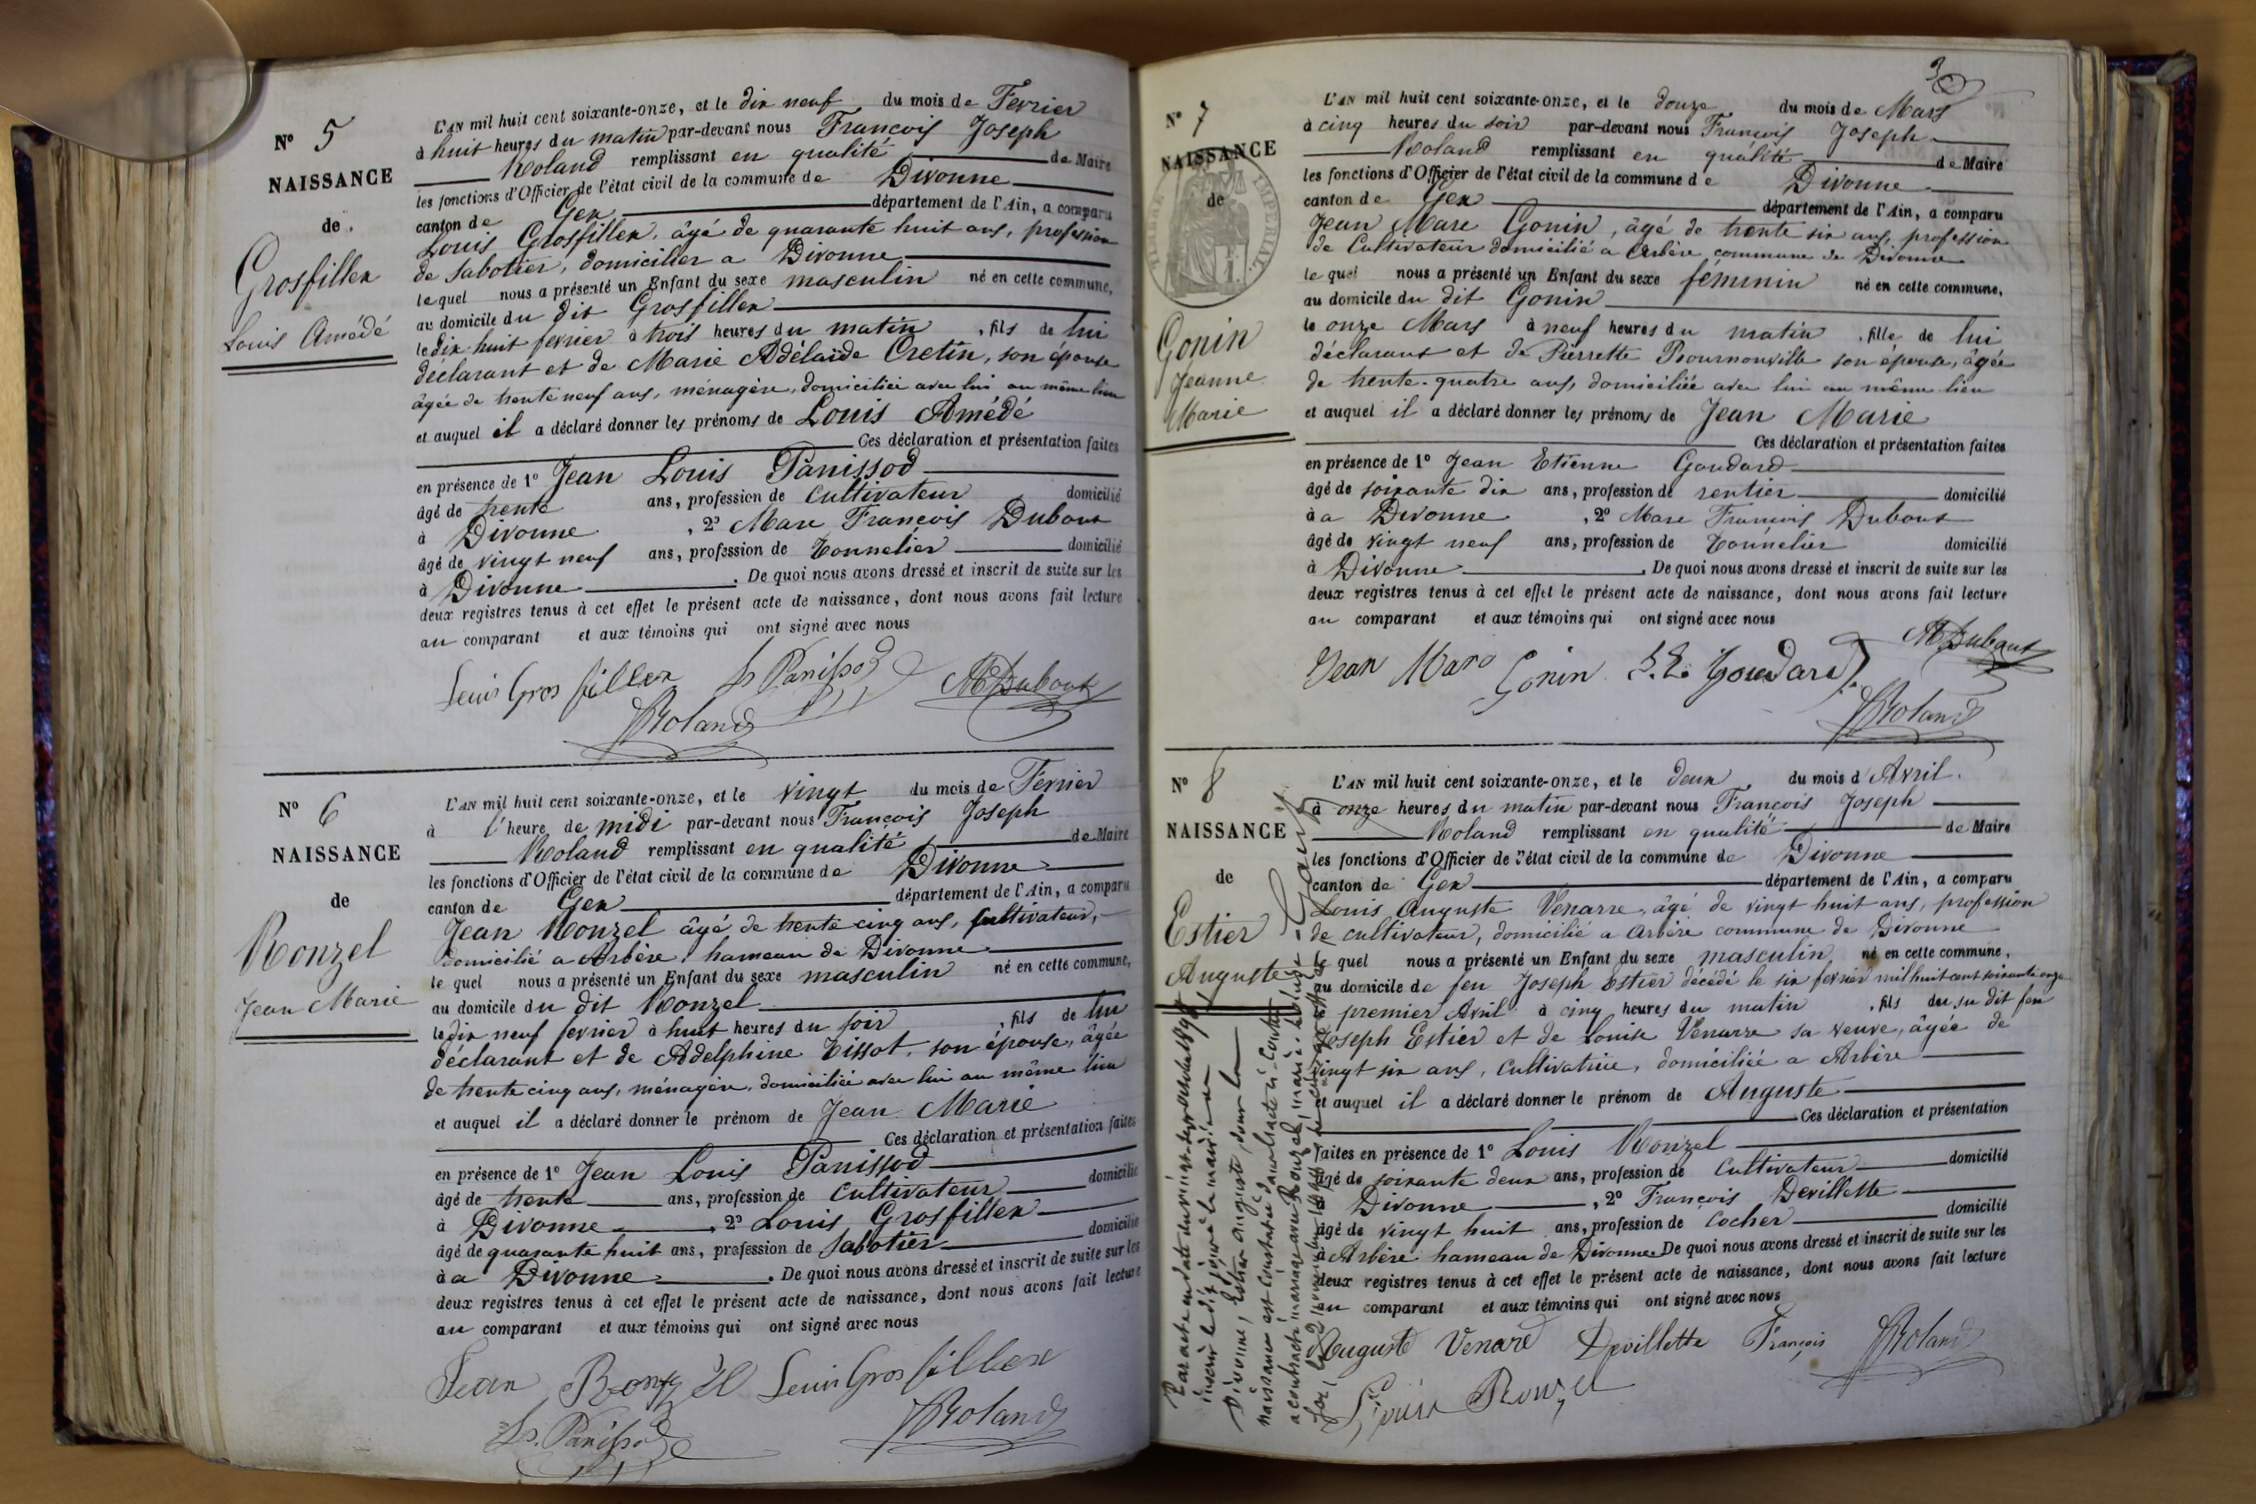 Nº 5
NAISSANCE
de
Grosfillex
Louis Amédé
L'AN mil huit cent soixante-onze, et le dix neuf du mois de Fevrier
à huit heures du matin par-devant nous François Joseph
Roland remplissant en qualité de Maire
les fonctions d'Officier de l'état civil de la commune de Divonne
canton de Gex département de l'Ain, a comparu
Louis Grosfillex, âgé de quarante huit ans, profession
de sabotier, domicilier a Divonne
le quel nous a présenté un Enfant du sexe masculin né en cette commune,
au domicile du dit Grosfillex
le dix huit fevrier à trois heures du matin, fils de lui
déclarant et de Marie Adélaïde Cretin, son épouse
âgée de trente neuf ans, ménagère, domiciliée avec lui au même lieu
et auquel il a déclaré donner les prénoms de Louis Amédé
Ces déclaration et présentation faites
en présence de 1º Jean Louis Panissod
âgé de trente ans, profession de cultivateur domicilié
à Divonne, 2º Marc François Dubout
âgé de vingt neuf ans, profession de Tonnelier domicilié
à Divonne. De quoi nous avons dressé et inscrit de suite sur les
deux registres tenus à cet effet le présent acte de naissance, dont nous avons fait lecture
au comparant et aux témoins qui ont signé avec nous
Louis Gros fillex Ls Panissod MDubout
Roland
Nº 6
NAISSANCE
de
Ronzel
Jean Marie
L'AN mil huit cent soixante-onze, et le vingt du mois de Fevrier
à l'heure de midi par-devant nous François Joseph
Roland remplissant en qualité de Maire
les fonctions d'Officier de l'état civil de la commune de Divonne
canton de Gex département de l'Ain, a comparu
Jean Ronzel âgé de trente cinq ans, cultivateur,
domicilié a Arbère, hameau de Divonne
le quel nous a présenté un Enfant du sexe masculin né en cette commune,
au domicile du dit Ronzel
le dix neuf fevrier à huit heures du soir, fils de lui
déclarant et de Adelphine Tissot, son épouse, âgée
de trente cinq ans, ménagère, domiciliée avec lui au même lieu
et auquel il a déclaré donner le prénom de Jean Marie
Ces déclaration et présentation faites
en présence de 1º Jean Louis Panissod
âgé de trente ans, profession de cultivateur domicilié
à Divonne, 2º Louis Grosfillex
âgé de quarante huit ans, profession de sabotier domicilié
à a Divonne. De quoi nous avons dressé et inscrit de suite sur les
deux registres tenus à cet effet le présent acte de naissance, dont nous avons fait lecture
au comparant et aux témoins qui ont signé avec nous
Jean Louis Gros fillex
Ls. Panissod Roland
3
Nº 7
NAISSANCE
de
TIMBRE IMPÉRIAL
Gonin
Jeanne
Marie
L'AN mil huit cent soixante-onze, et le douze du mois de Mars
à cinq heures du soir par-devant nous François Joseph
Roland remplissant en qualité de Maire
les fonctions d'Officier de l'état civil de la commune de Divonne
canton de Gex département de l'Ain, a comparu
Jean Marc Gonin, âgé de trente six ans, profession
de Cultivateur domicilié a Arbère, commune de Divonne
le quel nous a présenté un Enfant du sexe féminin né en cette commune,
au domicile du dit Gonin
le onze Mars à neuf heures du matin, fille de lui
déclarant et de Pierrette Bournonville son épouse, âgée
de trente-quatre ans, domiciliée avec lui au même lieu
et auquel il a déclaré donner les prénoms de Jean Marie
Ces déclaration et présentation faites
en présence de 1º Jean Etienne Goudard
âgé de soixante dix ans, profession de rentier domicilié
à a Divonne, 2º Marc François Dubout
âgé de vingt neuf ans, profession de Tonnelier domicilié
à Divonne. De quoi nous avons dressé et inscrit de suite sur les
deux registres tenus à cet effet le présent acte de naissance, dont nous avons fait lecture
au comparant et aux témoins qui ont signé avec nous
Jean Marc Gonin Goudard MDubout
Roland
Nº 8
NAISSANCE
de
Estier
Auguste
L'AN mil huit cent soixante-onze, et le deux du mois d'Avril.
à onze heures du matin par-devant nous François Joseph
Roland remplissant en qualité de Maire
les fonctions d'Officier de l'état civil de la commune de Divonne
canton de Gex département de l'Ain, a comparu
Louis Auguste Venarre, âgé de vingt huit ans, profession
de cultivateur, domicilié a Arbère commune de Divonne
le quel nous a présenté un Enfant du sexe masculin né en cette commune,
au domicile de feu Joseph Estier décédé le six fevrier mil huit cent soixante onze
le premier Avril à cinq heures du matin, fils du su dit feu
Joseph Estier et de Louise Venarre sa veuve, âgée de
vingt six ans, cultivatrice, domiciliée a Arbère
et auquel il a déclaré donner le prénom de Auguste
Ces déclaration et présentation
faites en présence de 1º Louis Ronzel
âgé de soixante deux ans, profession de Cultivateur domicilié
à Divonne, 2º François Devillette
âgé de vingt huit ans, profession de cocher domicilié
à Arbère hameau de Divonne De quoi nous avons dressé et inscrit de suite sur les
deux registres tenus à cet effet le présent acte de naissance, dont nous avons fait lecture
au comparant et aux témoins qui ont signé avec nous
Auguste Venare Devillette François Roland
Louis Ronzel
Par acte en date du vingt sept
inscrit le dit jour à la mairie de
Divonne, Estier Auguste, dont la
naissance est constatée dans l'acte ci-contre
a contracté mariage avec Rouzel Marie